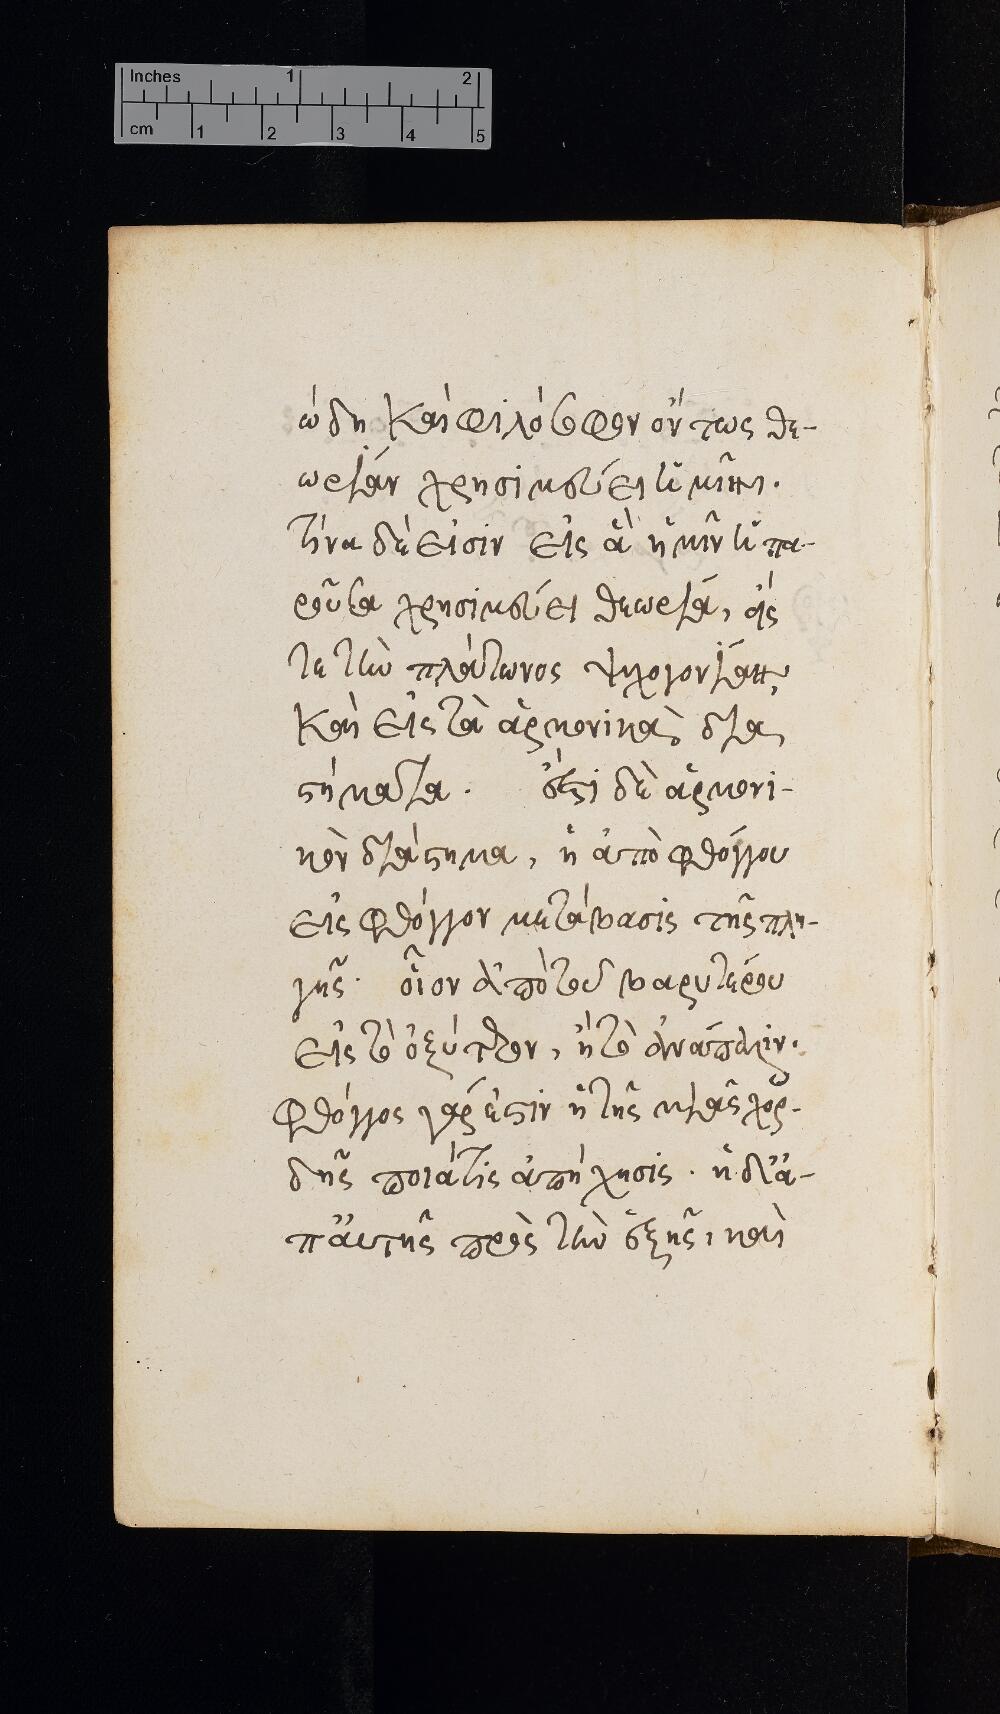 Inches 1 2
cm 1 2 3 4 5
ώδη καὶ φιλόσοφον ὄντως θε-
ωρίαν χρησιμεύει
τίνα δέ εἰσιν εἰς ἃ ἡμῖν ἡ πα-
ροῦσα χρησιμεύει θεωρία, εἴς
τε τὴν πλάτωνος ψυχογονίαν,
καὶ εἰς τὰ ἁρμονικὰ δια
στήματα. ἔστι δὲ ἁρμονι-
κὸν διάστημα, ἡ ἀπὸ φθόγγου
εἰς φθόγγον μετάβασις τῆς πλη-
γῆς· οἷον ἀπὸ τοῦ βαρυτέρου
εἰς τὸ ὀξύτερον, ἢ τὸ ἀνάπαλιν.
φθόγγος γάρ ἐστιν ἡ τῆς μιᾶς χορ-
δῆς ποιά τις ἀπήχησις. ἡ δὲ ἀ-
π' αὐτῆς πρὸς τὴν ἑξῆς, καὶ